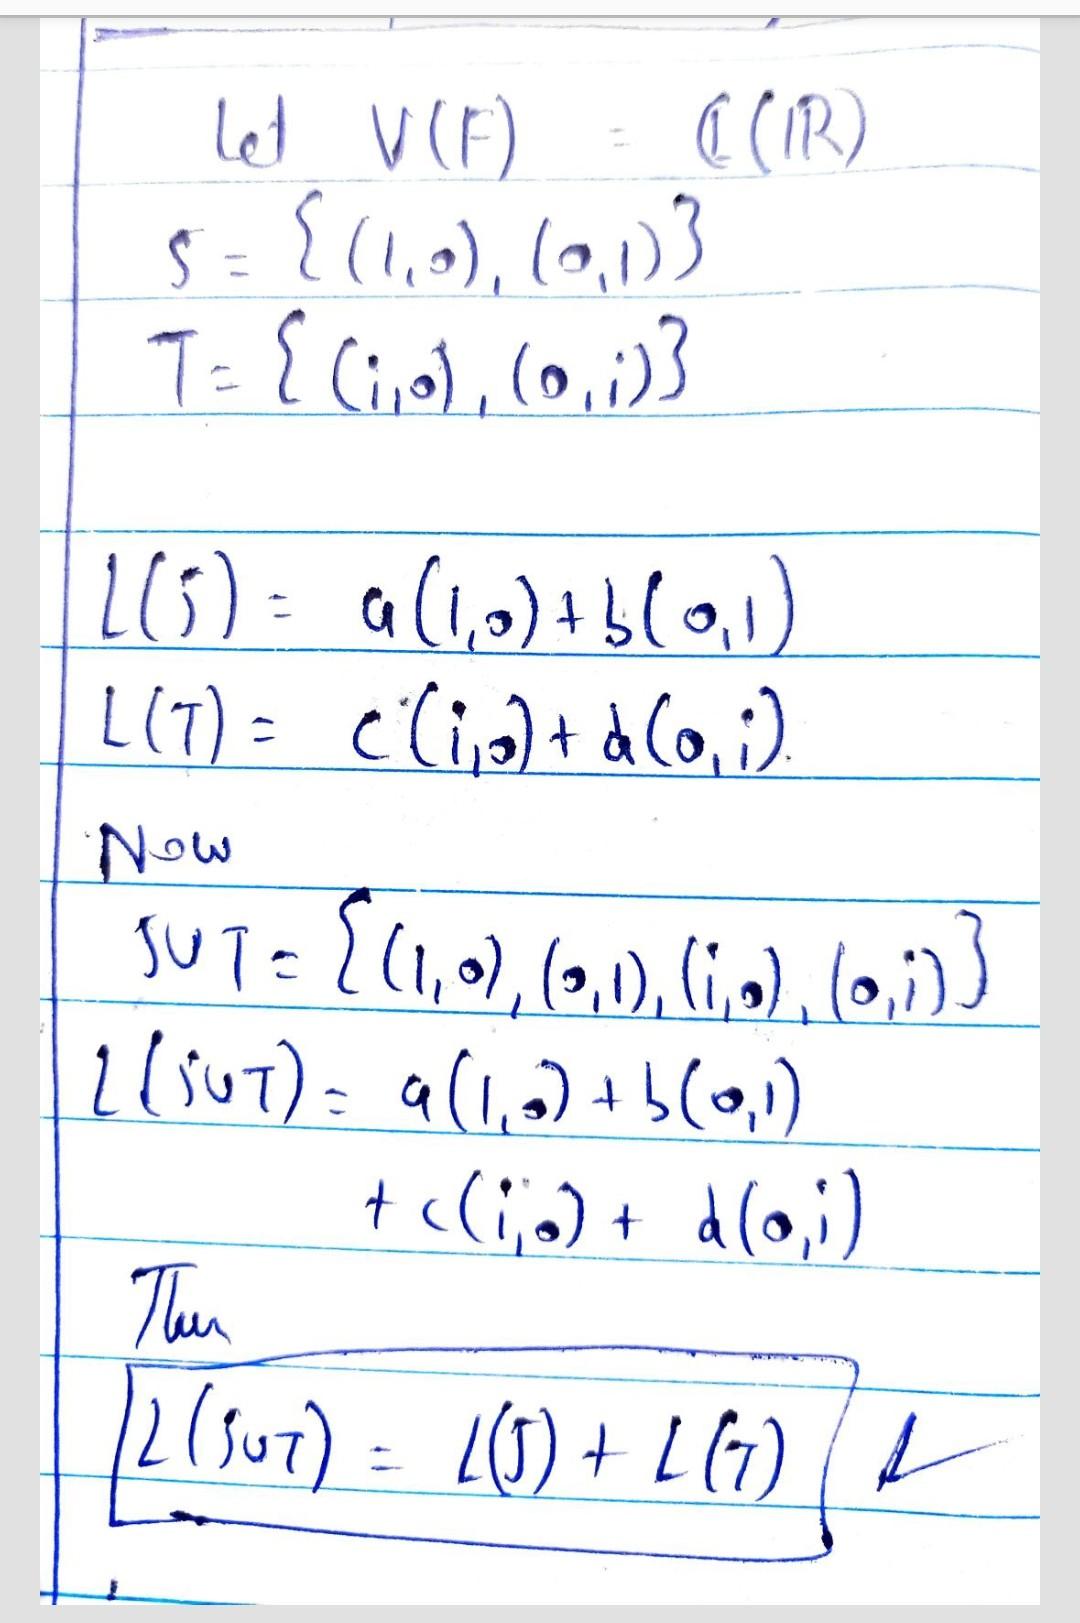 Let V(F) = ℂ(ℝ)
S = {(1,0), (0,1)}
T = {(i,0), (0,i)}
L(S) = a(1,0) + b(0,1)
L(T) = c(i,0) + d(0,i).
Now
SUT = {(1,0), (0,1), (i,0), (0,i)}
L(SUT) = a(1,0) + b(0,1)
+ c(i,0) + d(0,i)
Then
L(SUT) = L(S) + L(T)